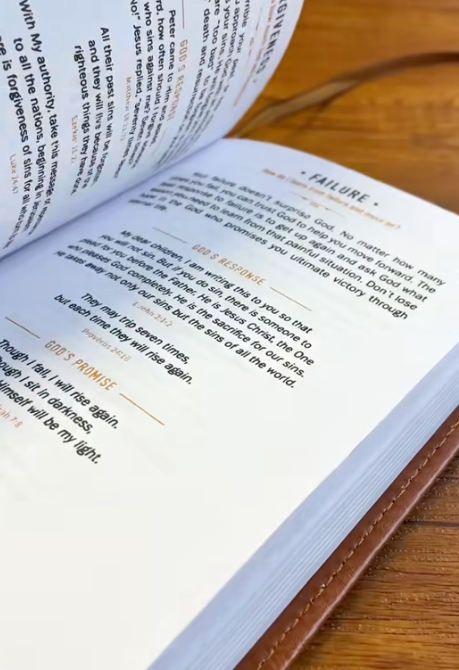 GIVENESS
are "too bad"
death and
GOD'S RESPONSE
Peter came to Him and
rd, how often should I
who sins against me? Seven
No!" Jesus replied, "seventy times
Matthew 18:21-22
All their past sins will be
and they will live because of the
righteous things they have done.
With My authority, take this message
to all the nations, beginning in
re is forgiveness of sins for all who turn
Luke 24:47
• FAILURE •
How do I learn from failure and move on?
Your failure doesn't surprise God. No matter how many
times you fail, you can trust God to help you move forward. The
best response to failure is to get up again and ask God what
you need to learn from that painful situation. Don't lose
in the God who promises you ultimate victory through
life.
GOD'S RESPONSE
My dear children, I am writing this to you so that
you will not sin. But if you do sin, there is someone to
plead for you before the Father. He is Jesus Christ, the One
who pleases God completely. He is the sacrifice for our sins.
He takes away not only our sins but the sins of all the world.
1 John 2:1-2
They may trip seven times,
but each time they will rise again.
Proverbs 24:16
GOD'S PROMISE
Though I fall, I will rise again.
ough I sit in darkness,
Himself will be my light.
7:8